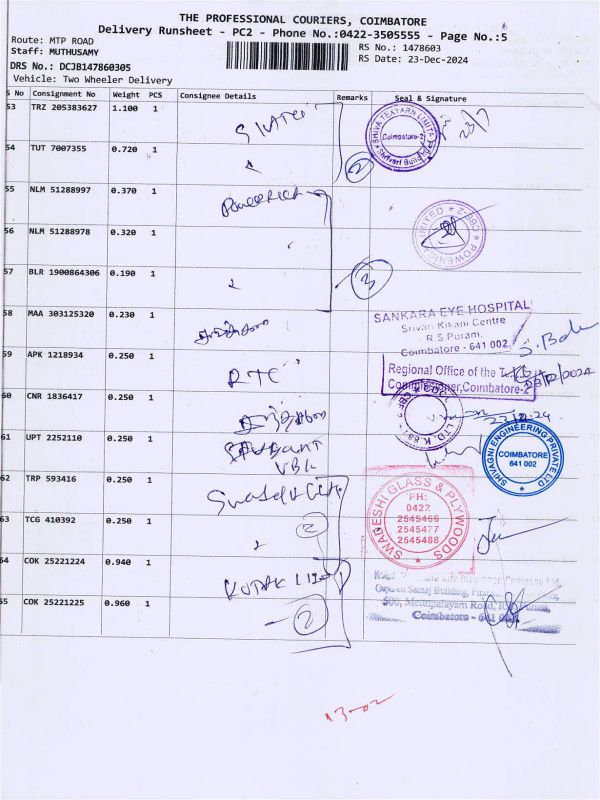 THE PROFESSIONAL COURIERS, COIMBATORE
Delivery Runsheet - PC2 - Phone No.:0422-3505555 - Page No.:5
Route: MTP ROAD
Staff: MUTHUSAMY
DRS No.: DCJB147860305
Vehicle: Two Wheeler Delivery
RS No.: 1478603
RS Date: 23-Dec-2024
S No Consignment No Weight PCS Consignee Details Remarks Seal & Signature
53 TRZ 205383627 1.100 1
SHIVA TEXYARN LIMITED
Coimbatore-2
54 TUT 7007355 0.720 1
2
55 NLM 51288997 0.370 1
56 NLM 51288978 0.320 1
LIMITED ★ CBE-2 ★ POWERIC
57 BLR 1900864306 0.190 1
3
58 MAA 303125320 0.230 1
SANKARA EYE HOSPITAL
Srivari Kikani Centre
R.S.Puram,
Coimbatore - 641 002
59 APK 1218934 0.250 1
RTC
Regional Office of the
Commissioner, Coimbatore-2
60 CNR 1836417 0.250 1
61 UPT 2252110 0.250 1
SHIVAGNI ENGINEERING PRIVATE LTD
COIMBATORE
641 002
62 TRP 593416 0.250 1
SWADESHI GLASS & PLYWOODS
PH:
0422
2545466
2545477
2545488
63 TCG 410392 0.250 1
2
64 COK 25221224 0.940 1
KOTAK
500, Mettupalayam Road,
Coimbatore - 641
65 COK 25221225 0.960 1
2
13-02